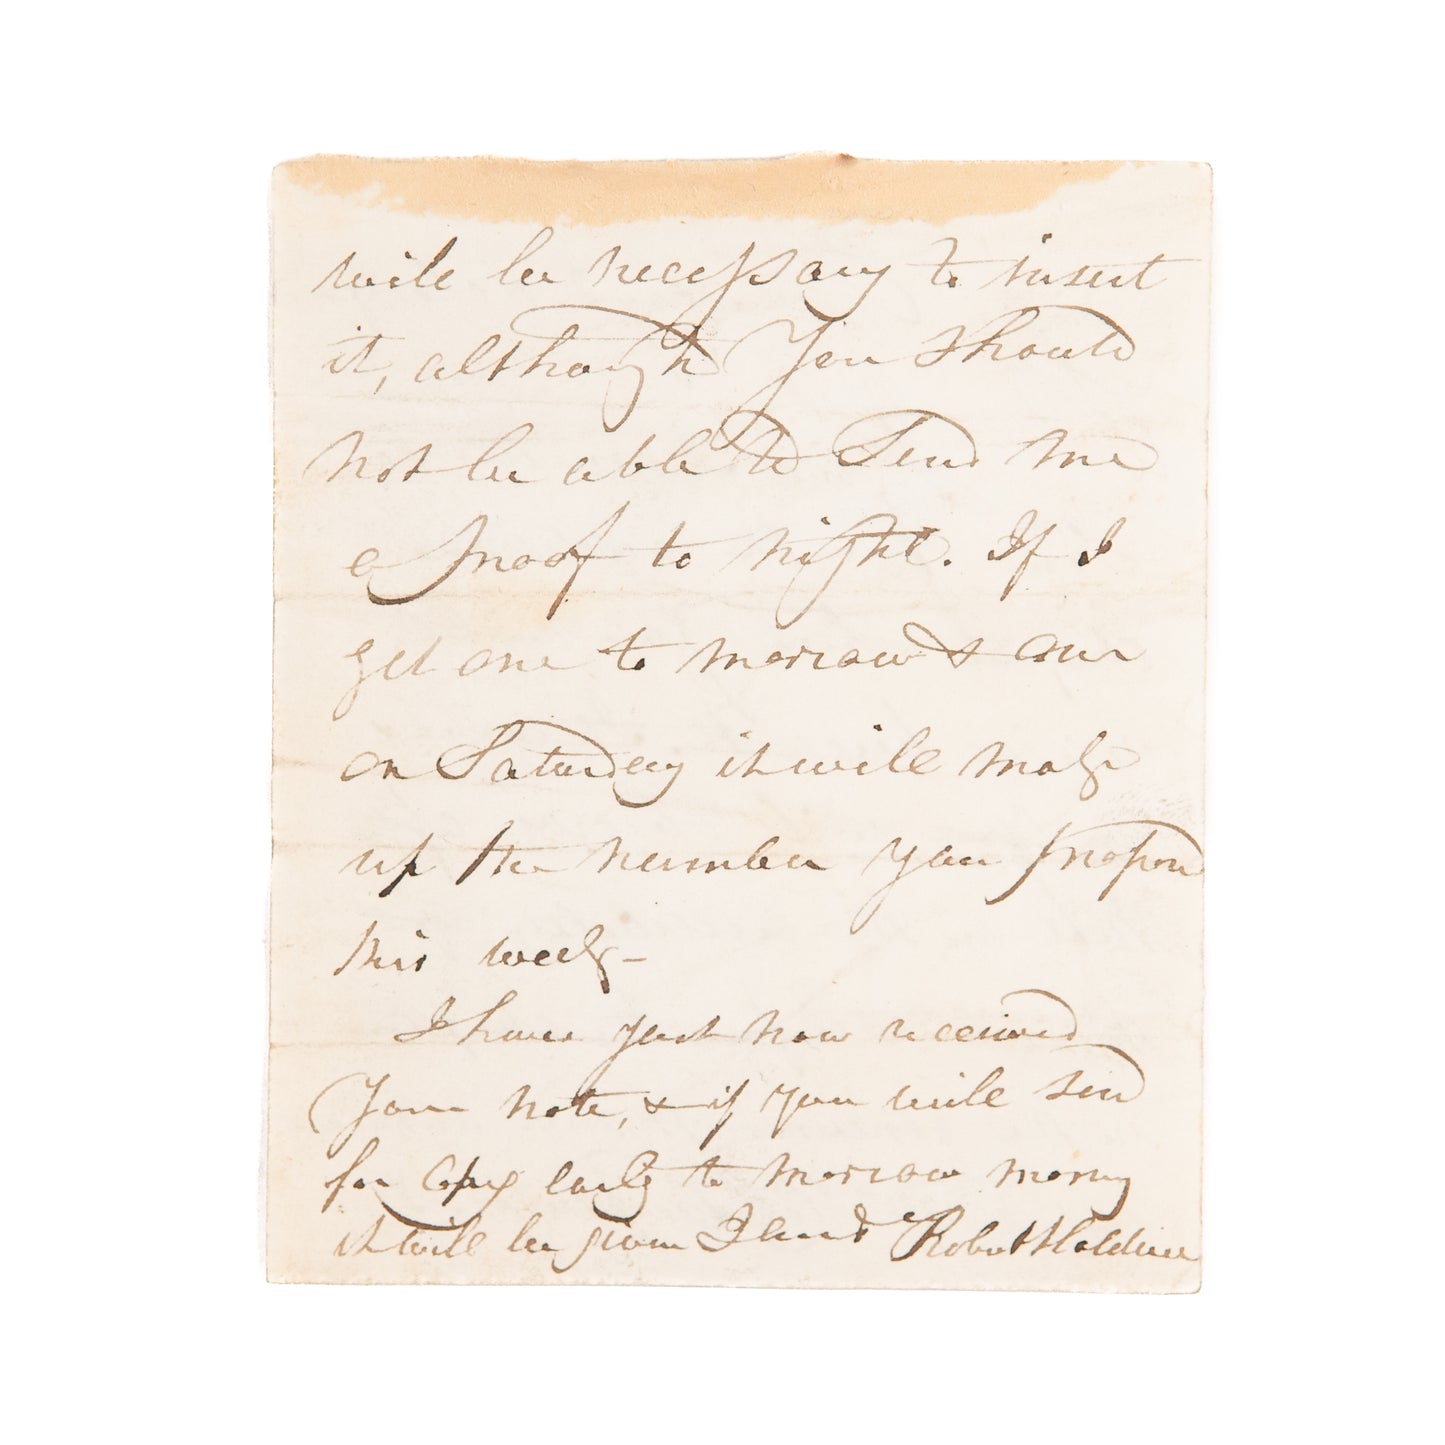 will be necessary to insert
it, although You should
not be able to Send me
a proof to night. If I
get one to morrow & one
on Saturday it will make
up the number you propose
this week –
I have just now received
Your note, & if you will send
for Copy early to morrow morng
it will be given I am Sr Robert Haldane